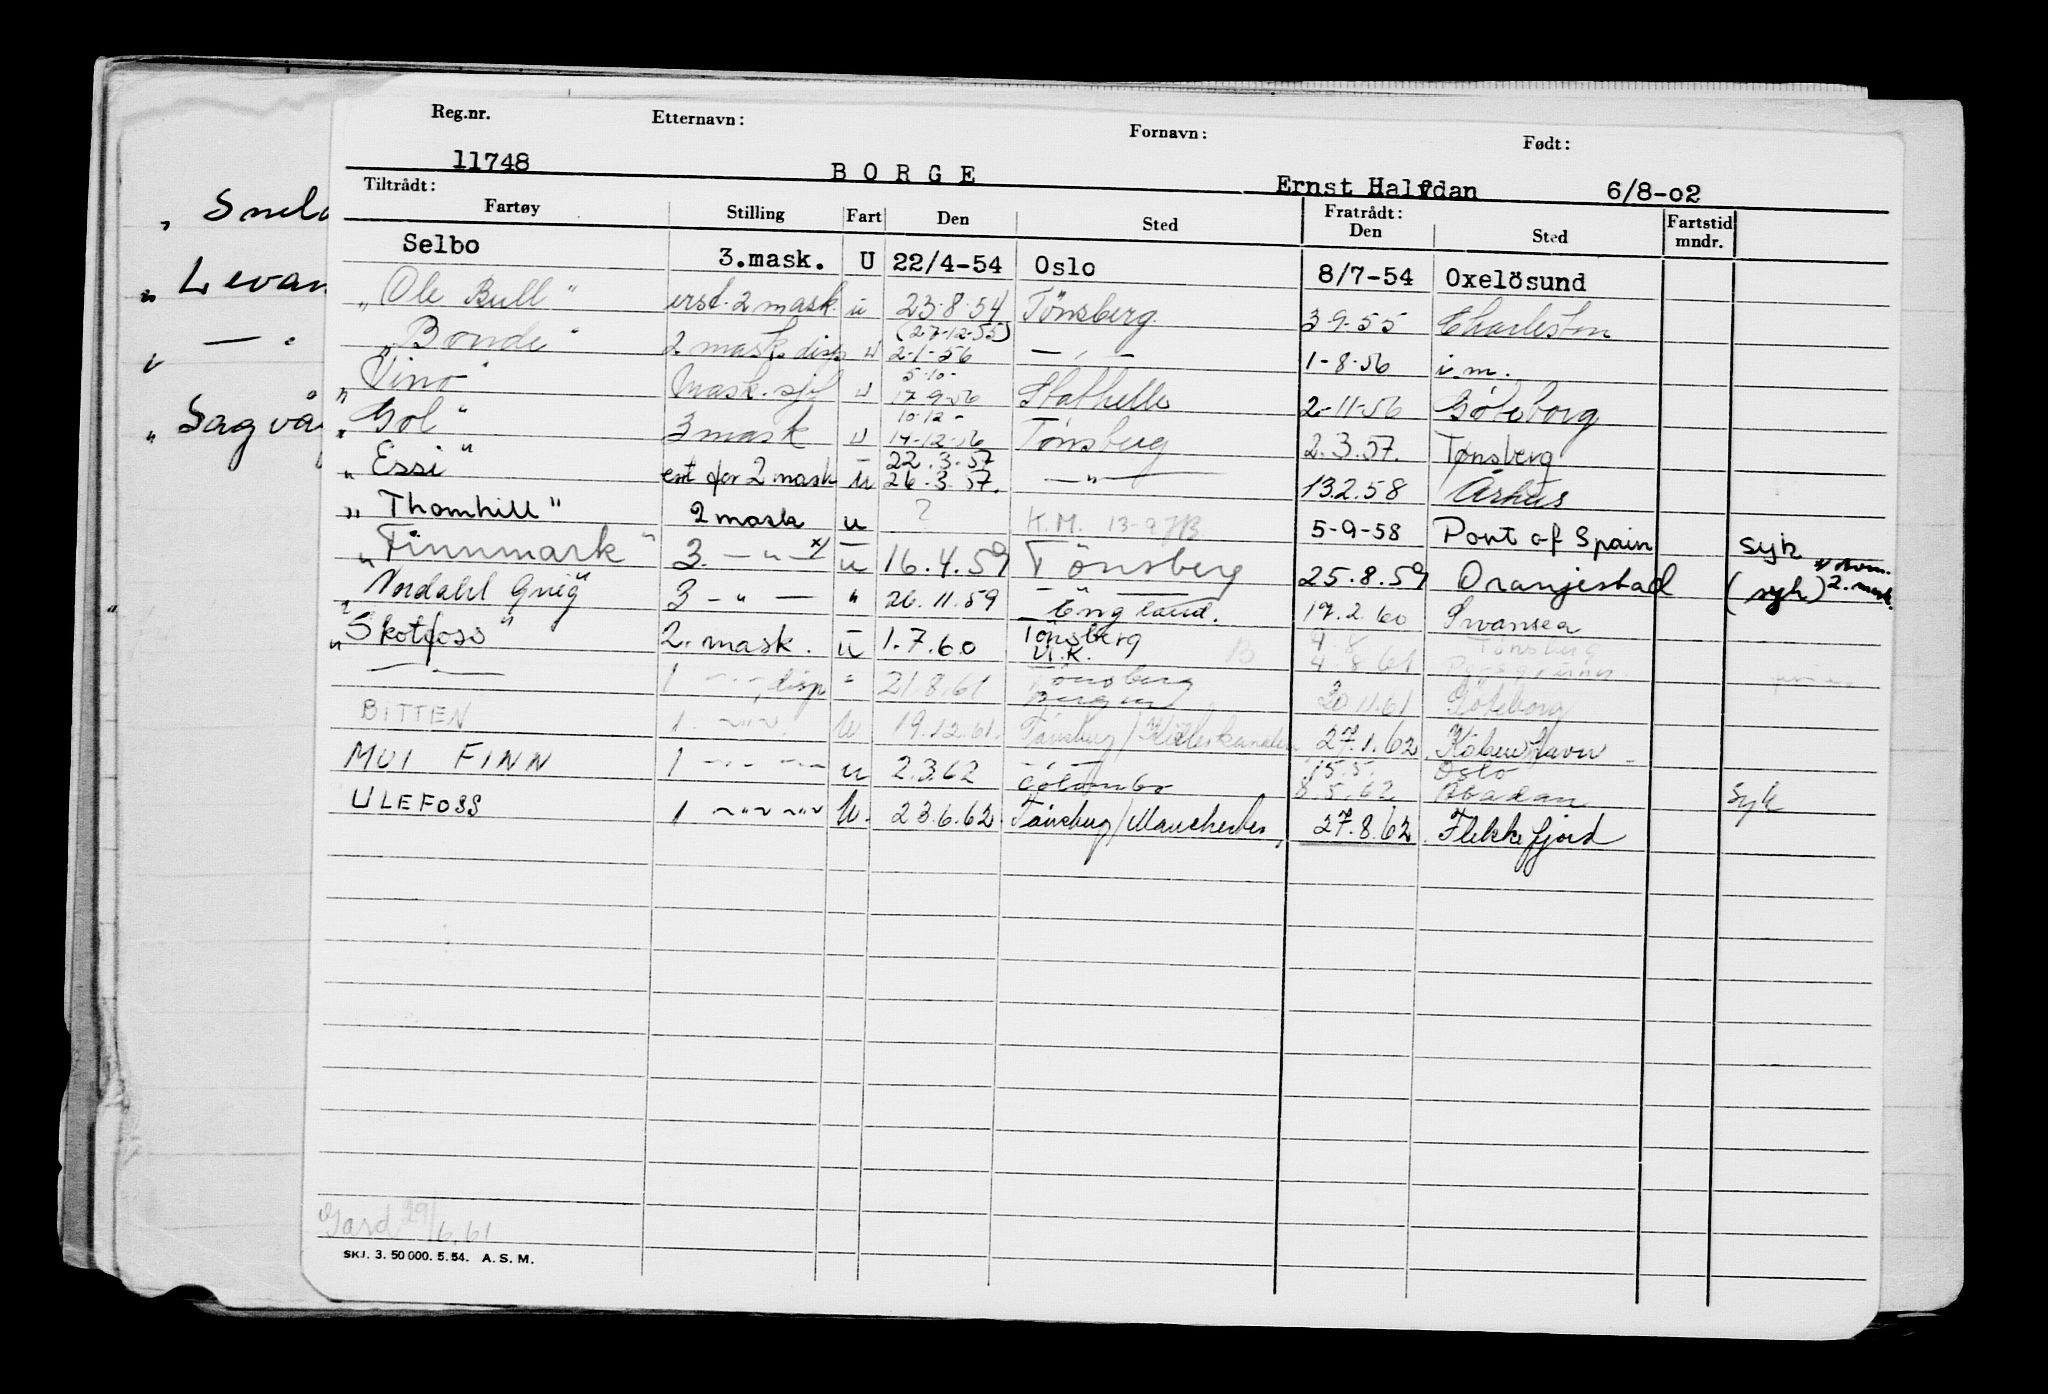 Reg.nr. Etternavn: Fornavn: Født:
11748 BORGE Ernst Halvdan 6/8-02
Tiltrådt: Fratrådt:
Fartøy Stilling Fart Den Sted Den Sted Fartstid mndr.
Selbo 3.mask. U 22/4-54 Oslo 8/7-54 Oxelösund
"Ole Bull" erst. 2 mask. u 23-8-54 Tönsberg 3-9-55 Charleston
(27-12-55)
"Bonde" 2 mask. disp u 2-1-56 — " — 1-8-56 i.m.
5-10-
"Vino" Mask. u 17-9-56 Stathelle 2-11-56 Göteborg
10-12-
"Gol" 3 mask u 14-12-56 Tönsberg 2.3.57. Tønsberg
22.3.57
"Essi" erst for 2 mask u 26.3.57. — " — 13.2.58 Århus
"Thomhill" 2 mask u ? K.M. 5-9-58 Port of Spain syk
"Finnmark" 3. — " — x) u 16.4.59 Tönsberg 25.8.59 Oranjestad (syk) 2. mask.
"Nordahl Grieg" 3 — " — " 26.11.59 England. 17.2.60 Swansea
Tönsberg 4 8 Tönsberg
"Skotfoss" 2. mask. u 1.7.60 U.K. B 4 8 61
— " — 1 — " — disp " 21.8.61 Tönsberg Bergen 20.11.61 Göteborg
BITTEN 1. — " — u 19.12.61. Tönsberg / Kielerkanalen 27.1.62. København
— " — 15.5. Oslo
MUI FINN 1 — " — — " — u 2.3.62 Colombo 8.5.62 Abadan syk
ULEFOSS 1 — " — " — u. 23.6.62. Tönsberg / Manchester 27.8.62. Flekkefjord
Gard 29/6.61
SKJ. 3. 50 000. 5. 54. A. S. M.
" Sneld
" Levan
" — " —
" Sagvå